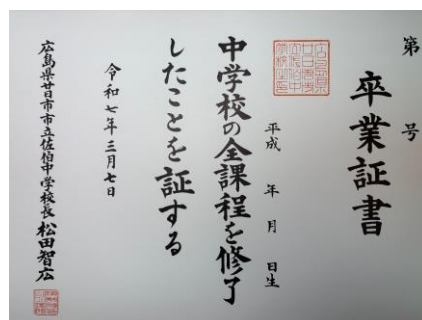 卒業証書
第 号
平成 年 月 日生
中学校の全課程を修了
したことを証する
令和七年三月七日
広島県廿日市市立佐伯中学校長 松田智広